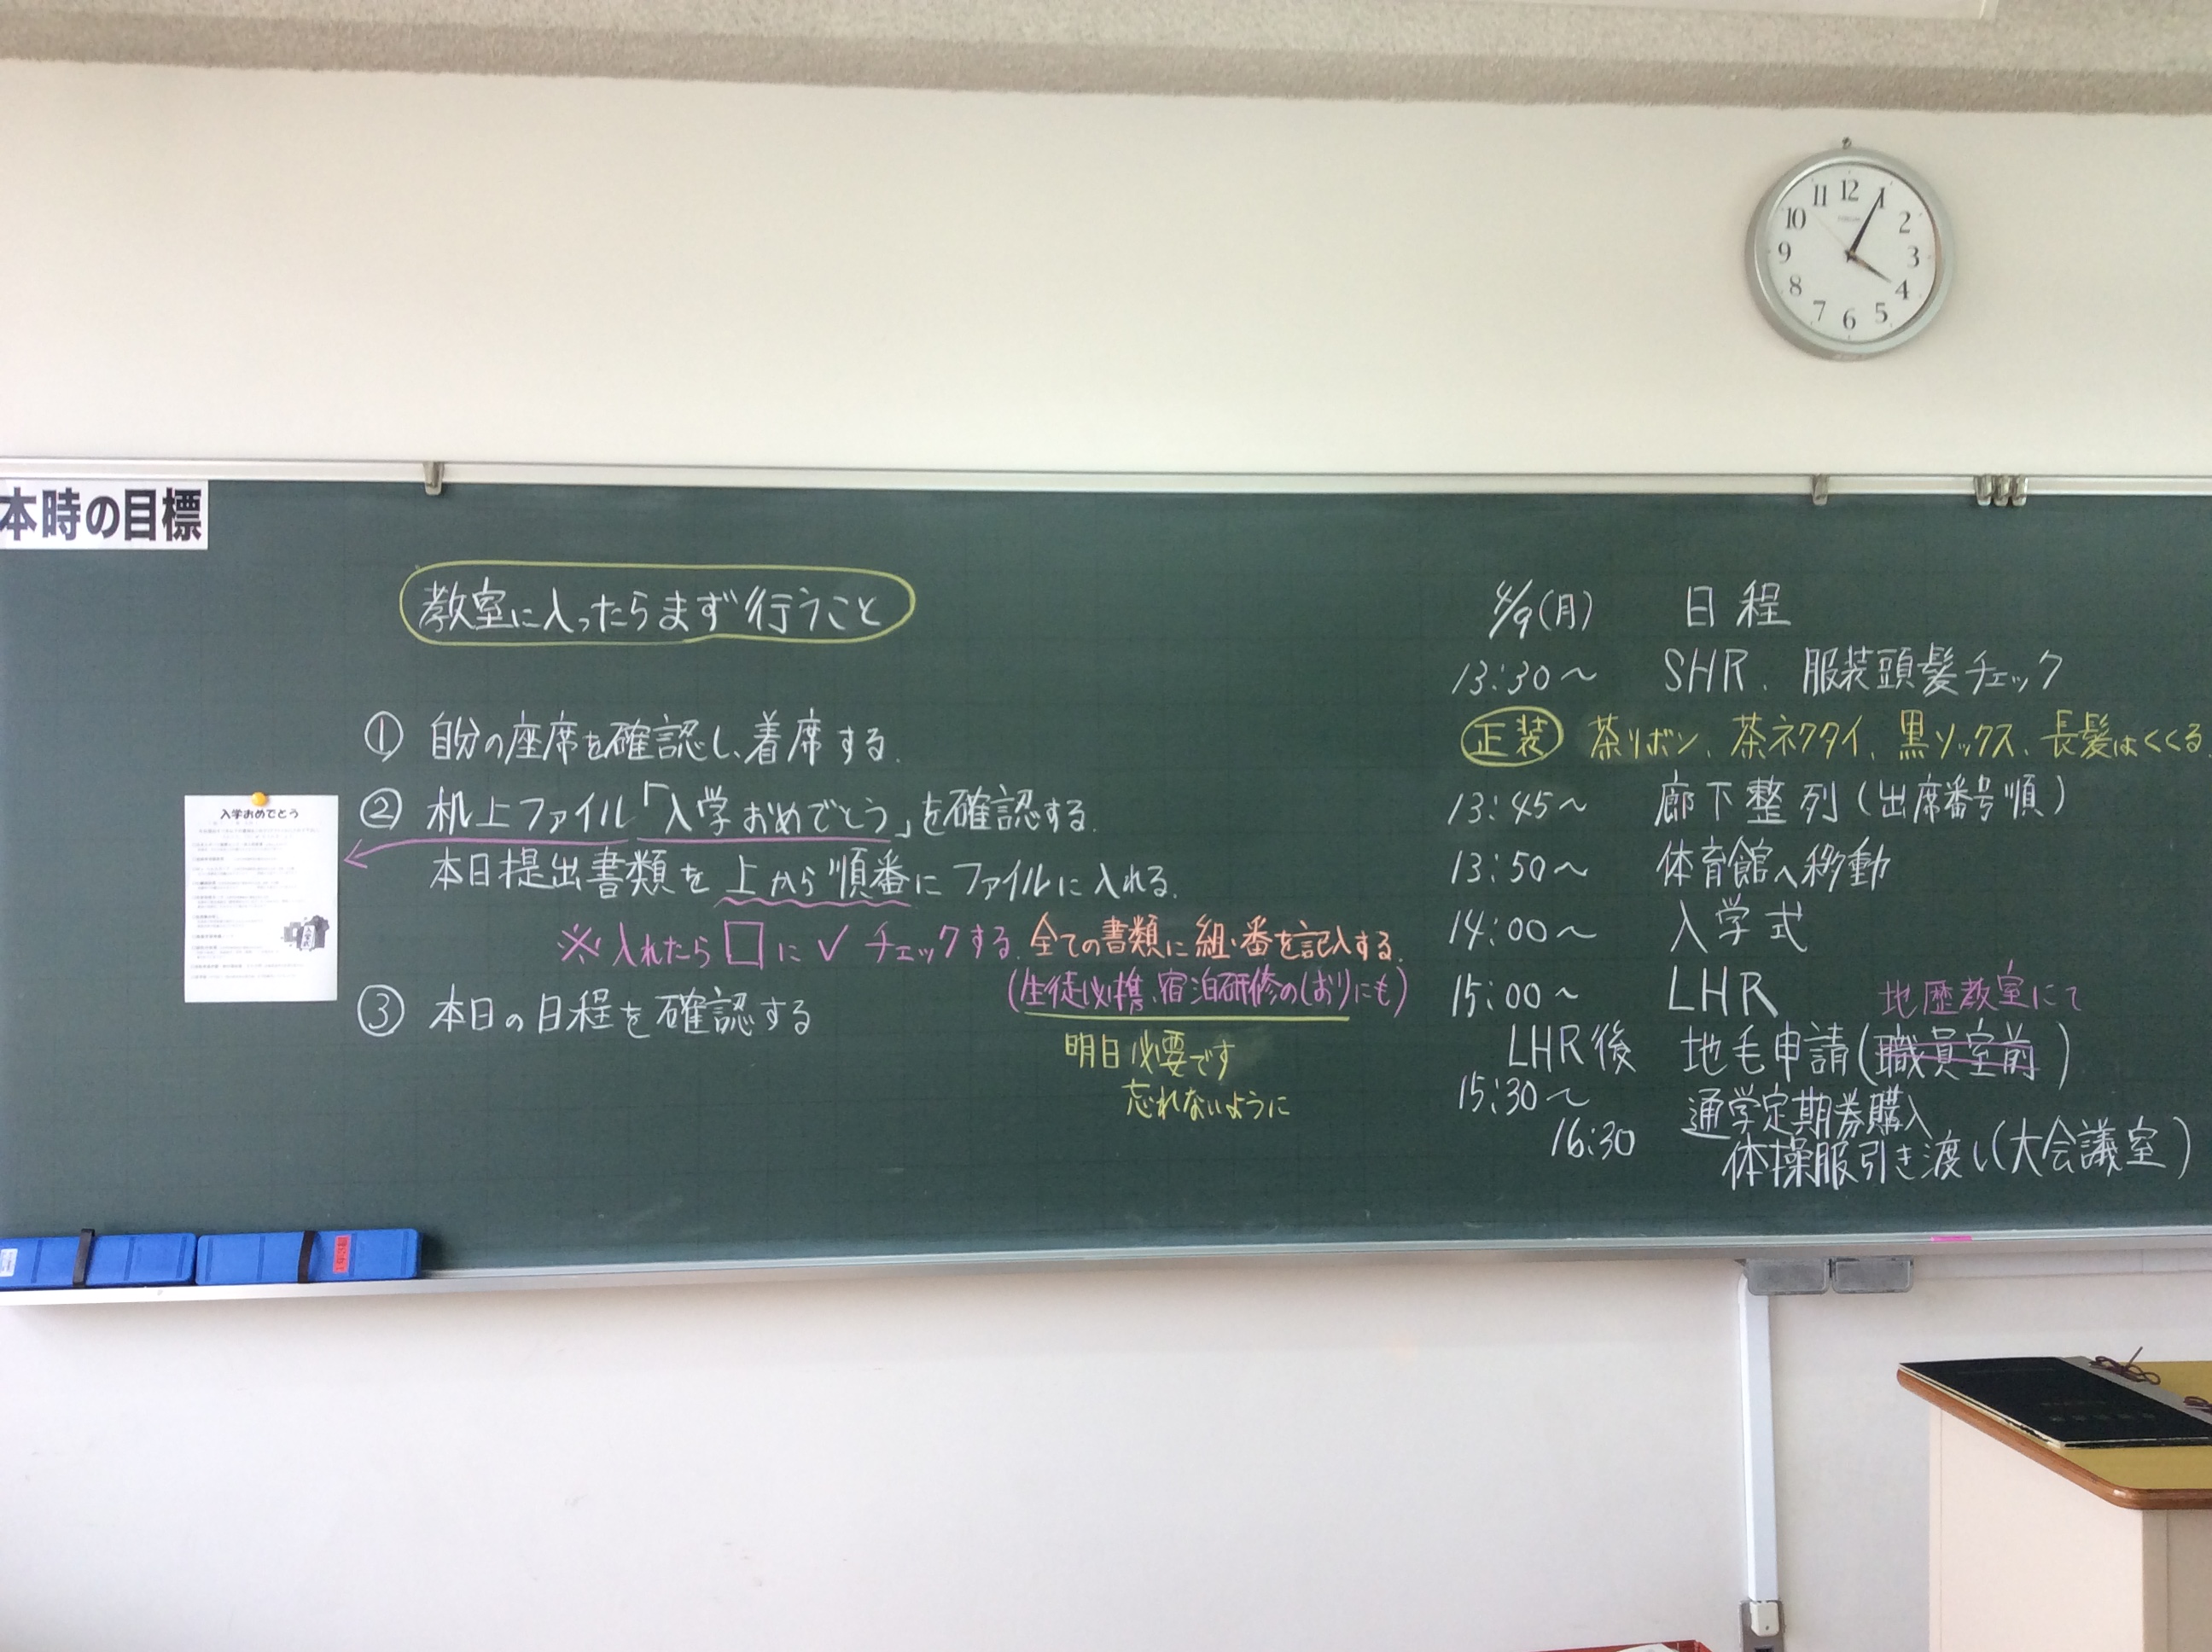 本時の目標
教室に入ったらまず行うこと
① 自分の座席を確認し、着席する.
② 机上ファイル「入学おめでとう」を確認する.
本日提出書類を上から順番にファイルに入れる.
※入れたら□に✓チェックする. 全ての書類に組・番を記入する.
(生徒必携、宿泊研修のしおりにも)
③ 本日の日程を確認する
明日必要です
忘れないように
入学おめでとう
4/9(月) 日程
13:30～ SHR、服装頭髪チェック
正装 茶リボン、茶ネクタイ、黒ソックス、長髪はくくる
13:45～ 廊下整列(出席番号順)
13:50～ 体育館へ移動
14:00～ 入学式
15:00～ LHR 地歴教室にて
LHR後 地毛申請(職員室前)
15:30～ 通学定期券購入
16:30 体操服引き渡し(大会議室)
12
1
2
3
4
5
6
7
8
9
10
11